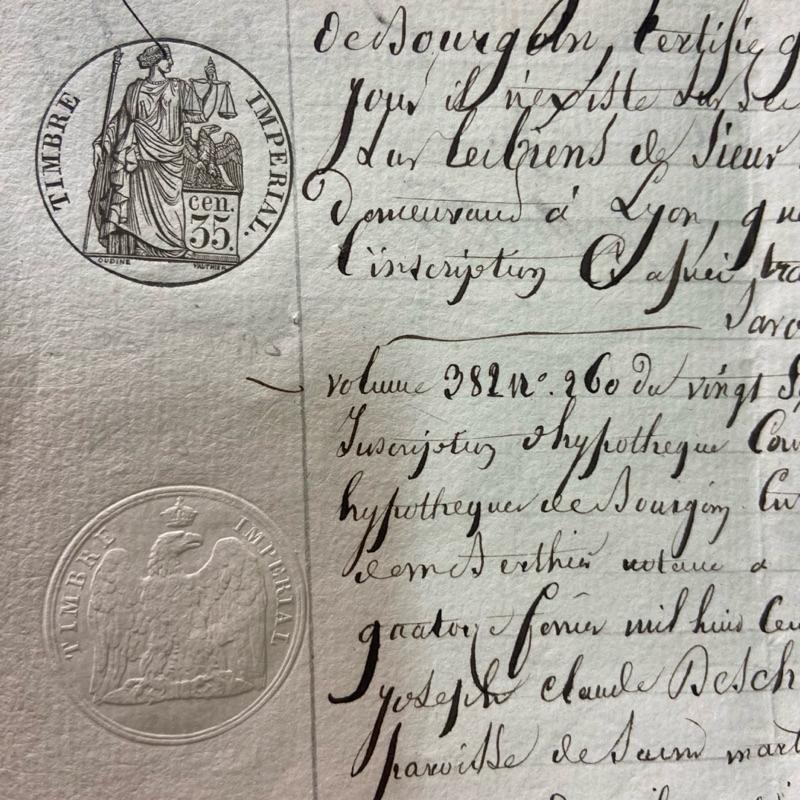 TIMBRE IMPERIAL.
cen.
35.
OUDINÉ
de Bourgoin, Certifie q
jour il n'existe sur
sur les biens de Sieur
demeurand à Lyon, que
l'inscription Ci apres
Savo
volume 382 n°. 260 du vingt
Inscription d'hypotheque
hypotheques de Bourgoin
de me Berthier notaire a
quatorze fevrier mil huit Cen
joseph claude Besch
paroisse de Saint mart
TIMBRE IMPERIAL